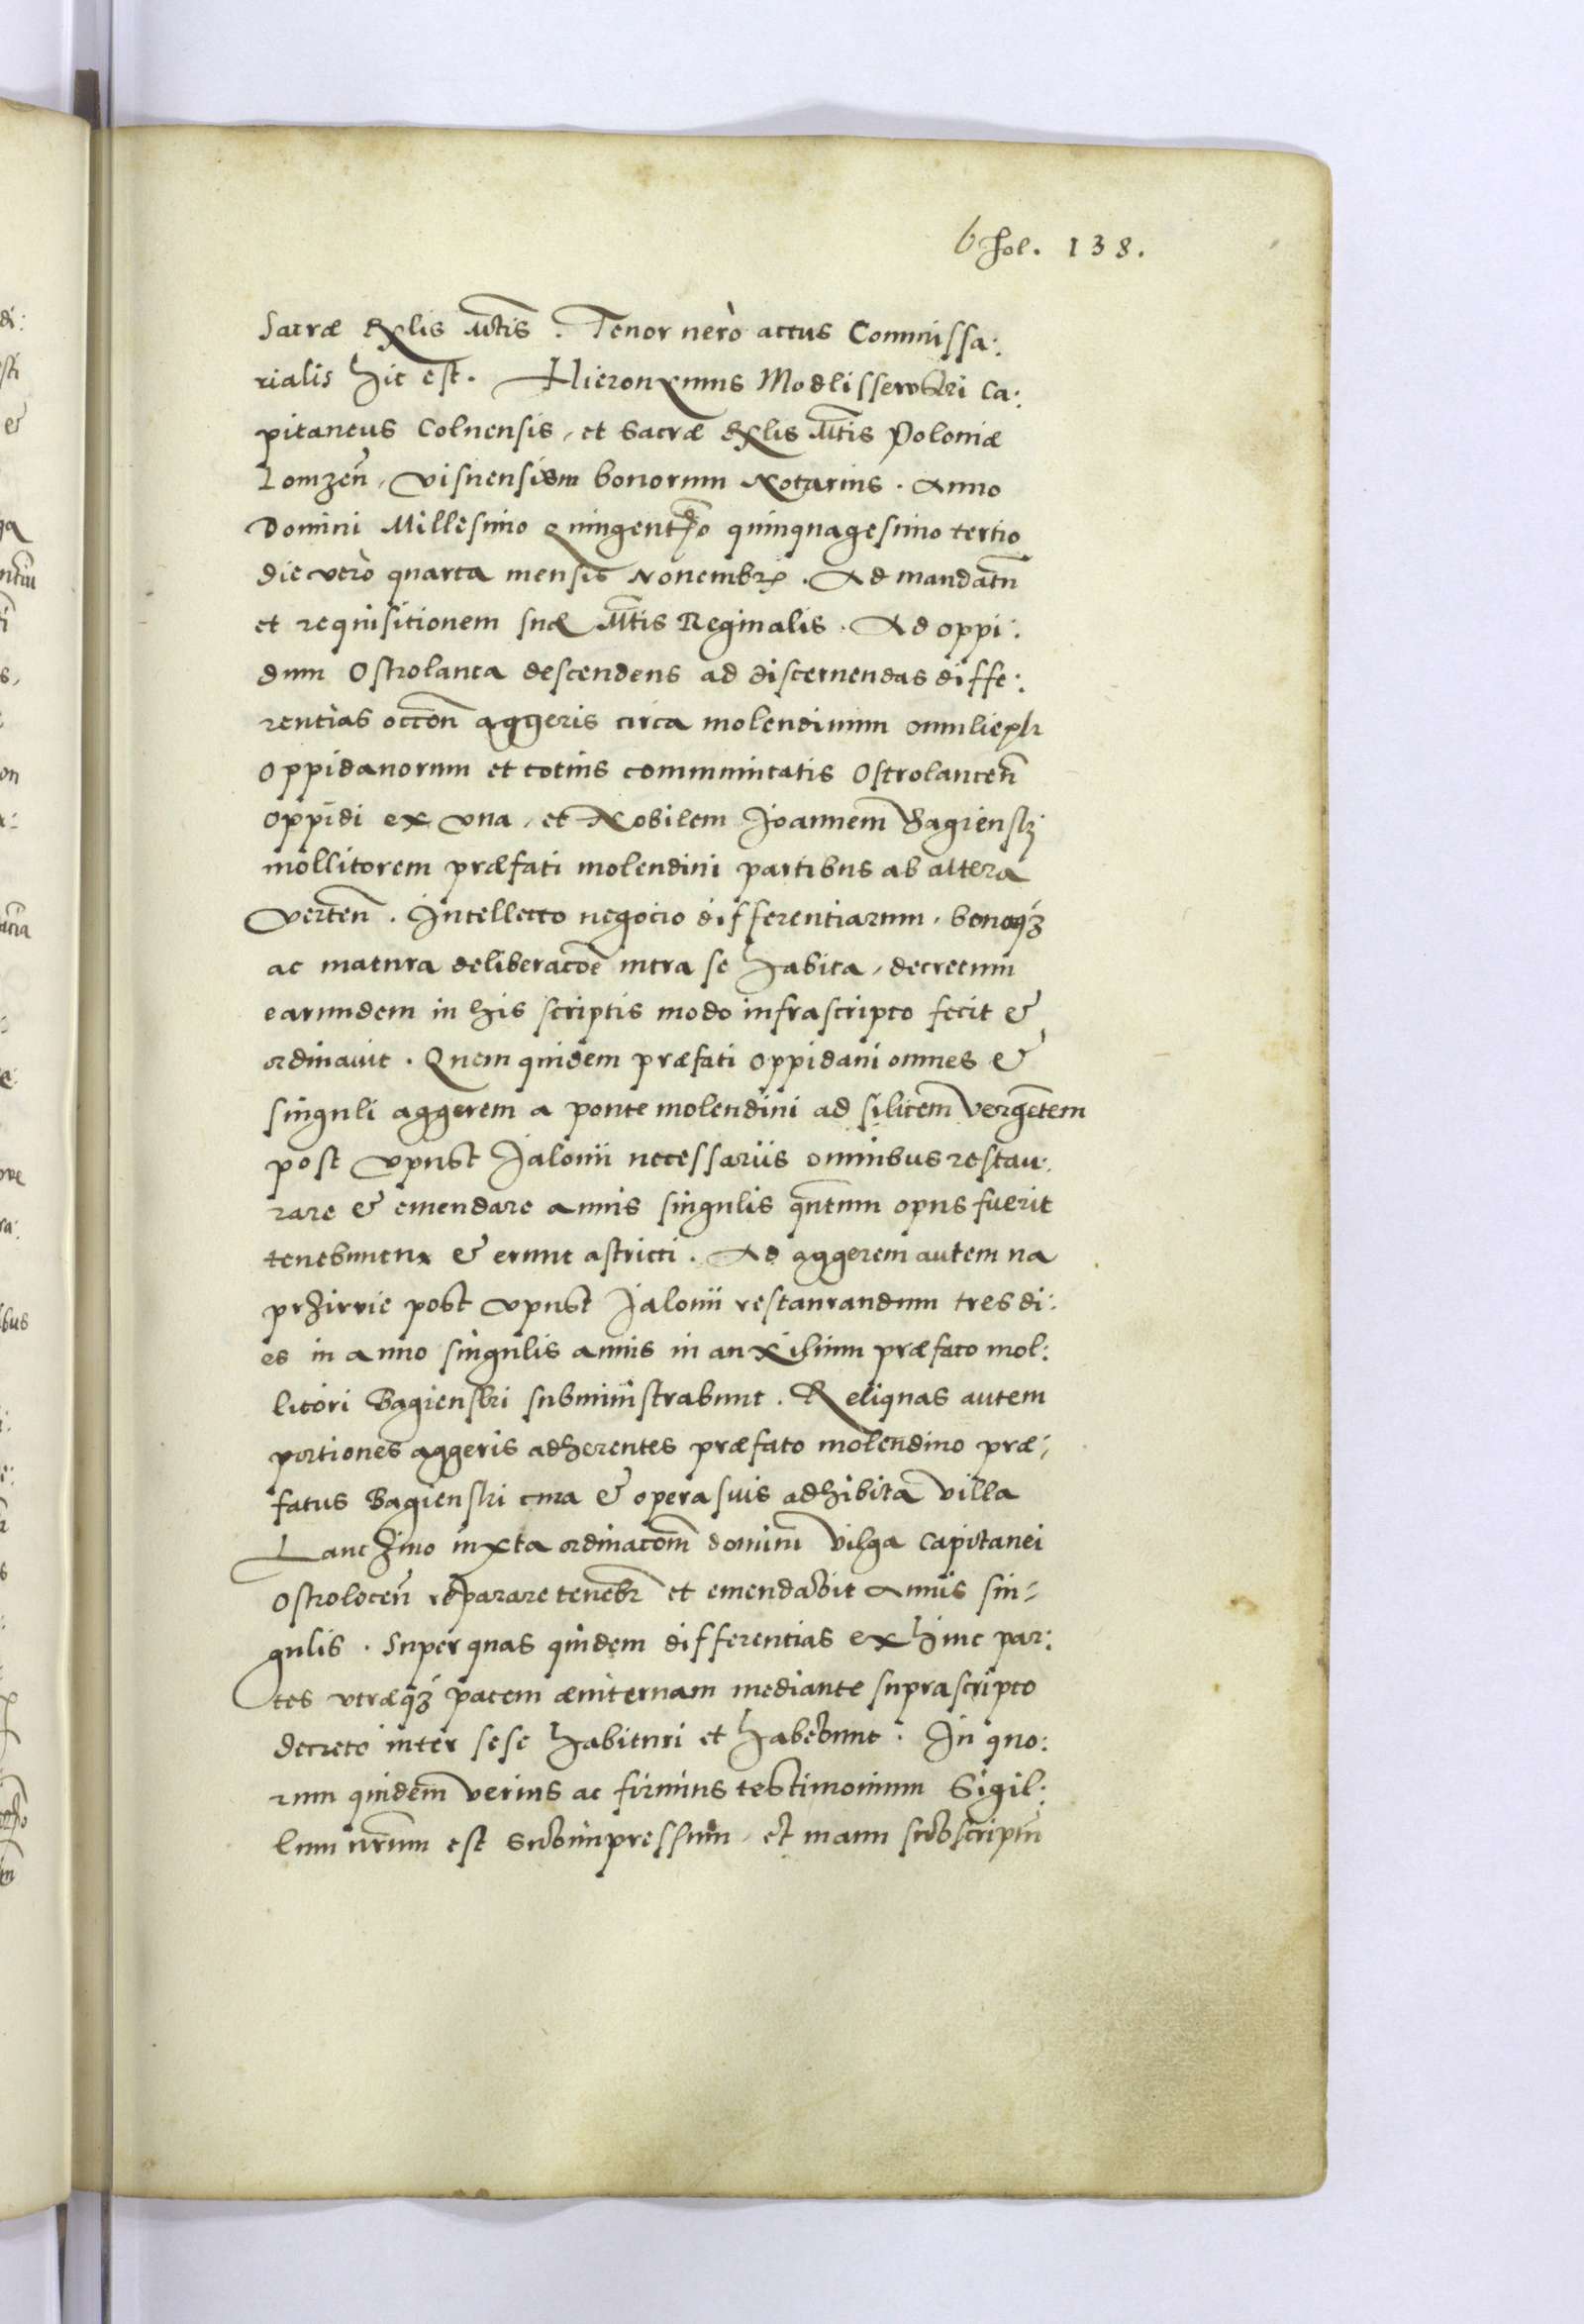 fol. 138.
Sacræ Rglis Mtis. Tenor verò actus Commissa:
rialis hic est. Hieronymus Modlissewski Ca:
pitaneus Colnensis, et Sacræ Rglis Mtis Poloniæ
Lomzeñ, Visnensium bonorum Notarius. Anno
Domini Millesimo Quingentmo quinquagesimo tertio
die verò quarta mensis Novembr. Ad mandatũ
et requisitionem suæ Mtis Reginalis. Ad oppi:
dum Ostrolanca descendens ad discernendas diffe:
rentias occoñ aggeris circa molendinum
Oppidanorum et totius communitatis Ostrolanceñ
oppidi ex una, et Nobilem Joannem Bagiensky
mollitorem præfati molendini partibus ab altera
Verteñ. Intellecto negocio differentiarum, bonaq3
ac matura deliberacõe intra se habita, decretum
earundem in his scriptis modo infrascripto fecit &
ordinavit. Quem quidem præfati oppidani omnes &
singuli aggerem a ponte molendini ad silicem vergẽtem
post Vpust Jalonii necessariis omnibus restau:
rare & emendare annis singulis quñtum opus fuerit
tenebuntur & erunt astricti. Ad aggerem autem na
przirvie post Vpust Jalonii restaurandum tres di:
es in anno singulis annis in auxilium præfato mol:
litori Bagienski subministrabunt. Reliquas autem
portiones aggeris adherentes præfato molendino præ:
fatus Bagienski cura & opera suis adhibita villa
Lanczino iuxta ordinacõm domini Vilga Capitanei
Ostroloceñ reparare tenebr et emendabit annis sin:
gulis. Super quas quidem differentias ex hinc par:
tes utræq3 pacem æviternam mediante suprascripto
decreto inter sese habituri et habebunt. In quo:
rum quidem verius ac firmius testimonium Sigil:
lum nrum est subimpressum, et manu subscriptũ